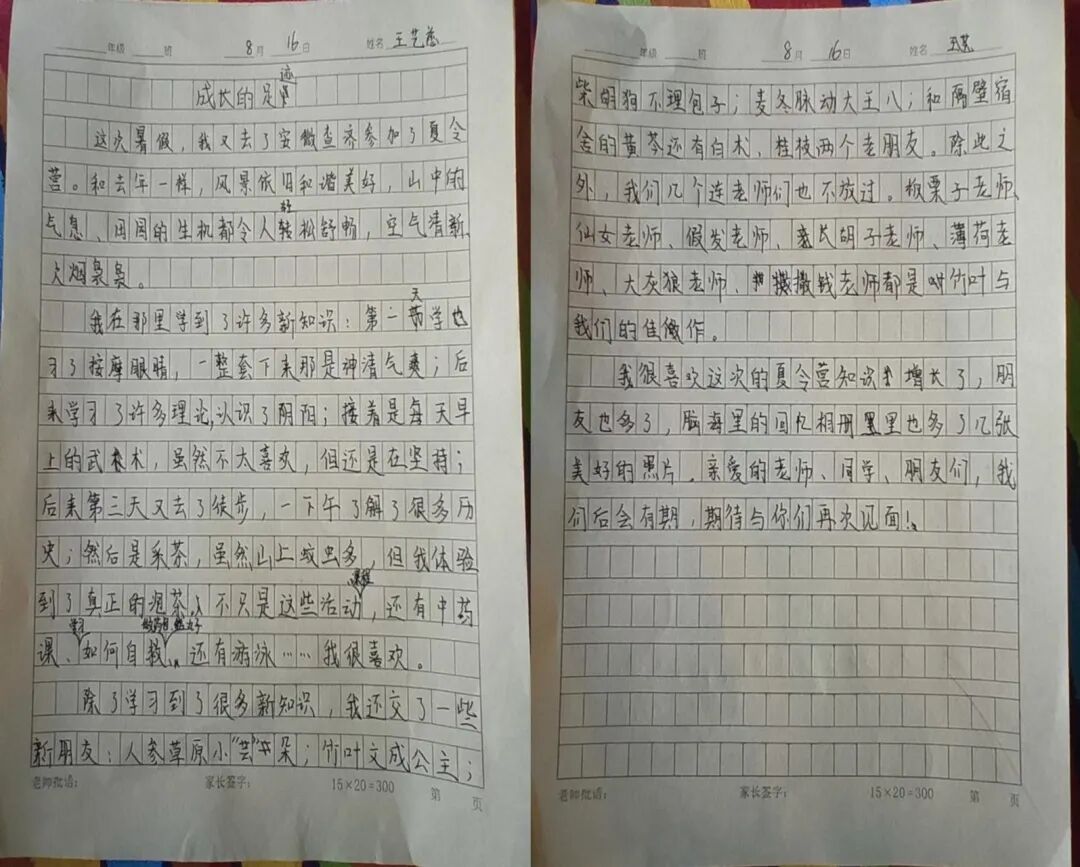 年级 班 8月 16日 姓名 王艺
成长的足迹
这次暑假，我又去了安徽查济参加了夏令
营。和去年一样，风景依旧和谐美好，山中的
气息、田园的生机都令人轻松舒畅，空气清新
火烟袅袅。
我在那里学到了许多新知识：第一天药学也
习了按摩眼睛，一整套下来那是神清气爽；后
来学习了许多理论，认识了阴阳；接着是每天早
上的武术，虽然不太喜欢，但还是在坚持；
后来第三天又去了徒步，一下午了解了很多历
史；然后是采茶，虽然山上蚊虫多，但我体验
到了真正的泡茶。不只是这些活动课程，还有中药
课、学习如何自救、做药丸子、还有游泳……我很喜欢。
除了学习到了很多新知识，我还交了一些
新朋友：人参草原小“芸”朵；竹叶文成公主；
老师批语： 家长签字： 15×20=300 第 页
年级 班 8月 16日 姓名 王艺
柴胡狗不理包子；麦冬脉动大王八；和隔壁宿
舍的黄芩还有白术、桂枝两个老朋友。除此之
外，我们几个连老师们也不放过。板栗子老师、
仙女老师、假发老师、长胡子老师、薄荷老
师、大灰狼老师、撒钱老师都是竹叶与
我们的佳作。
我很喜欢这次的夏令营知识增长了，朋
友也多了，脑海里的回忆相册里也多了几张
美好的照片。亲爱的老师、同学、朋友们，我
们后会有期，期待与你们再次见面！
老师批语： 家长签字： 15×20=300 第 页